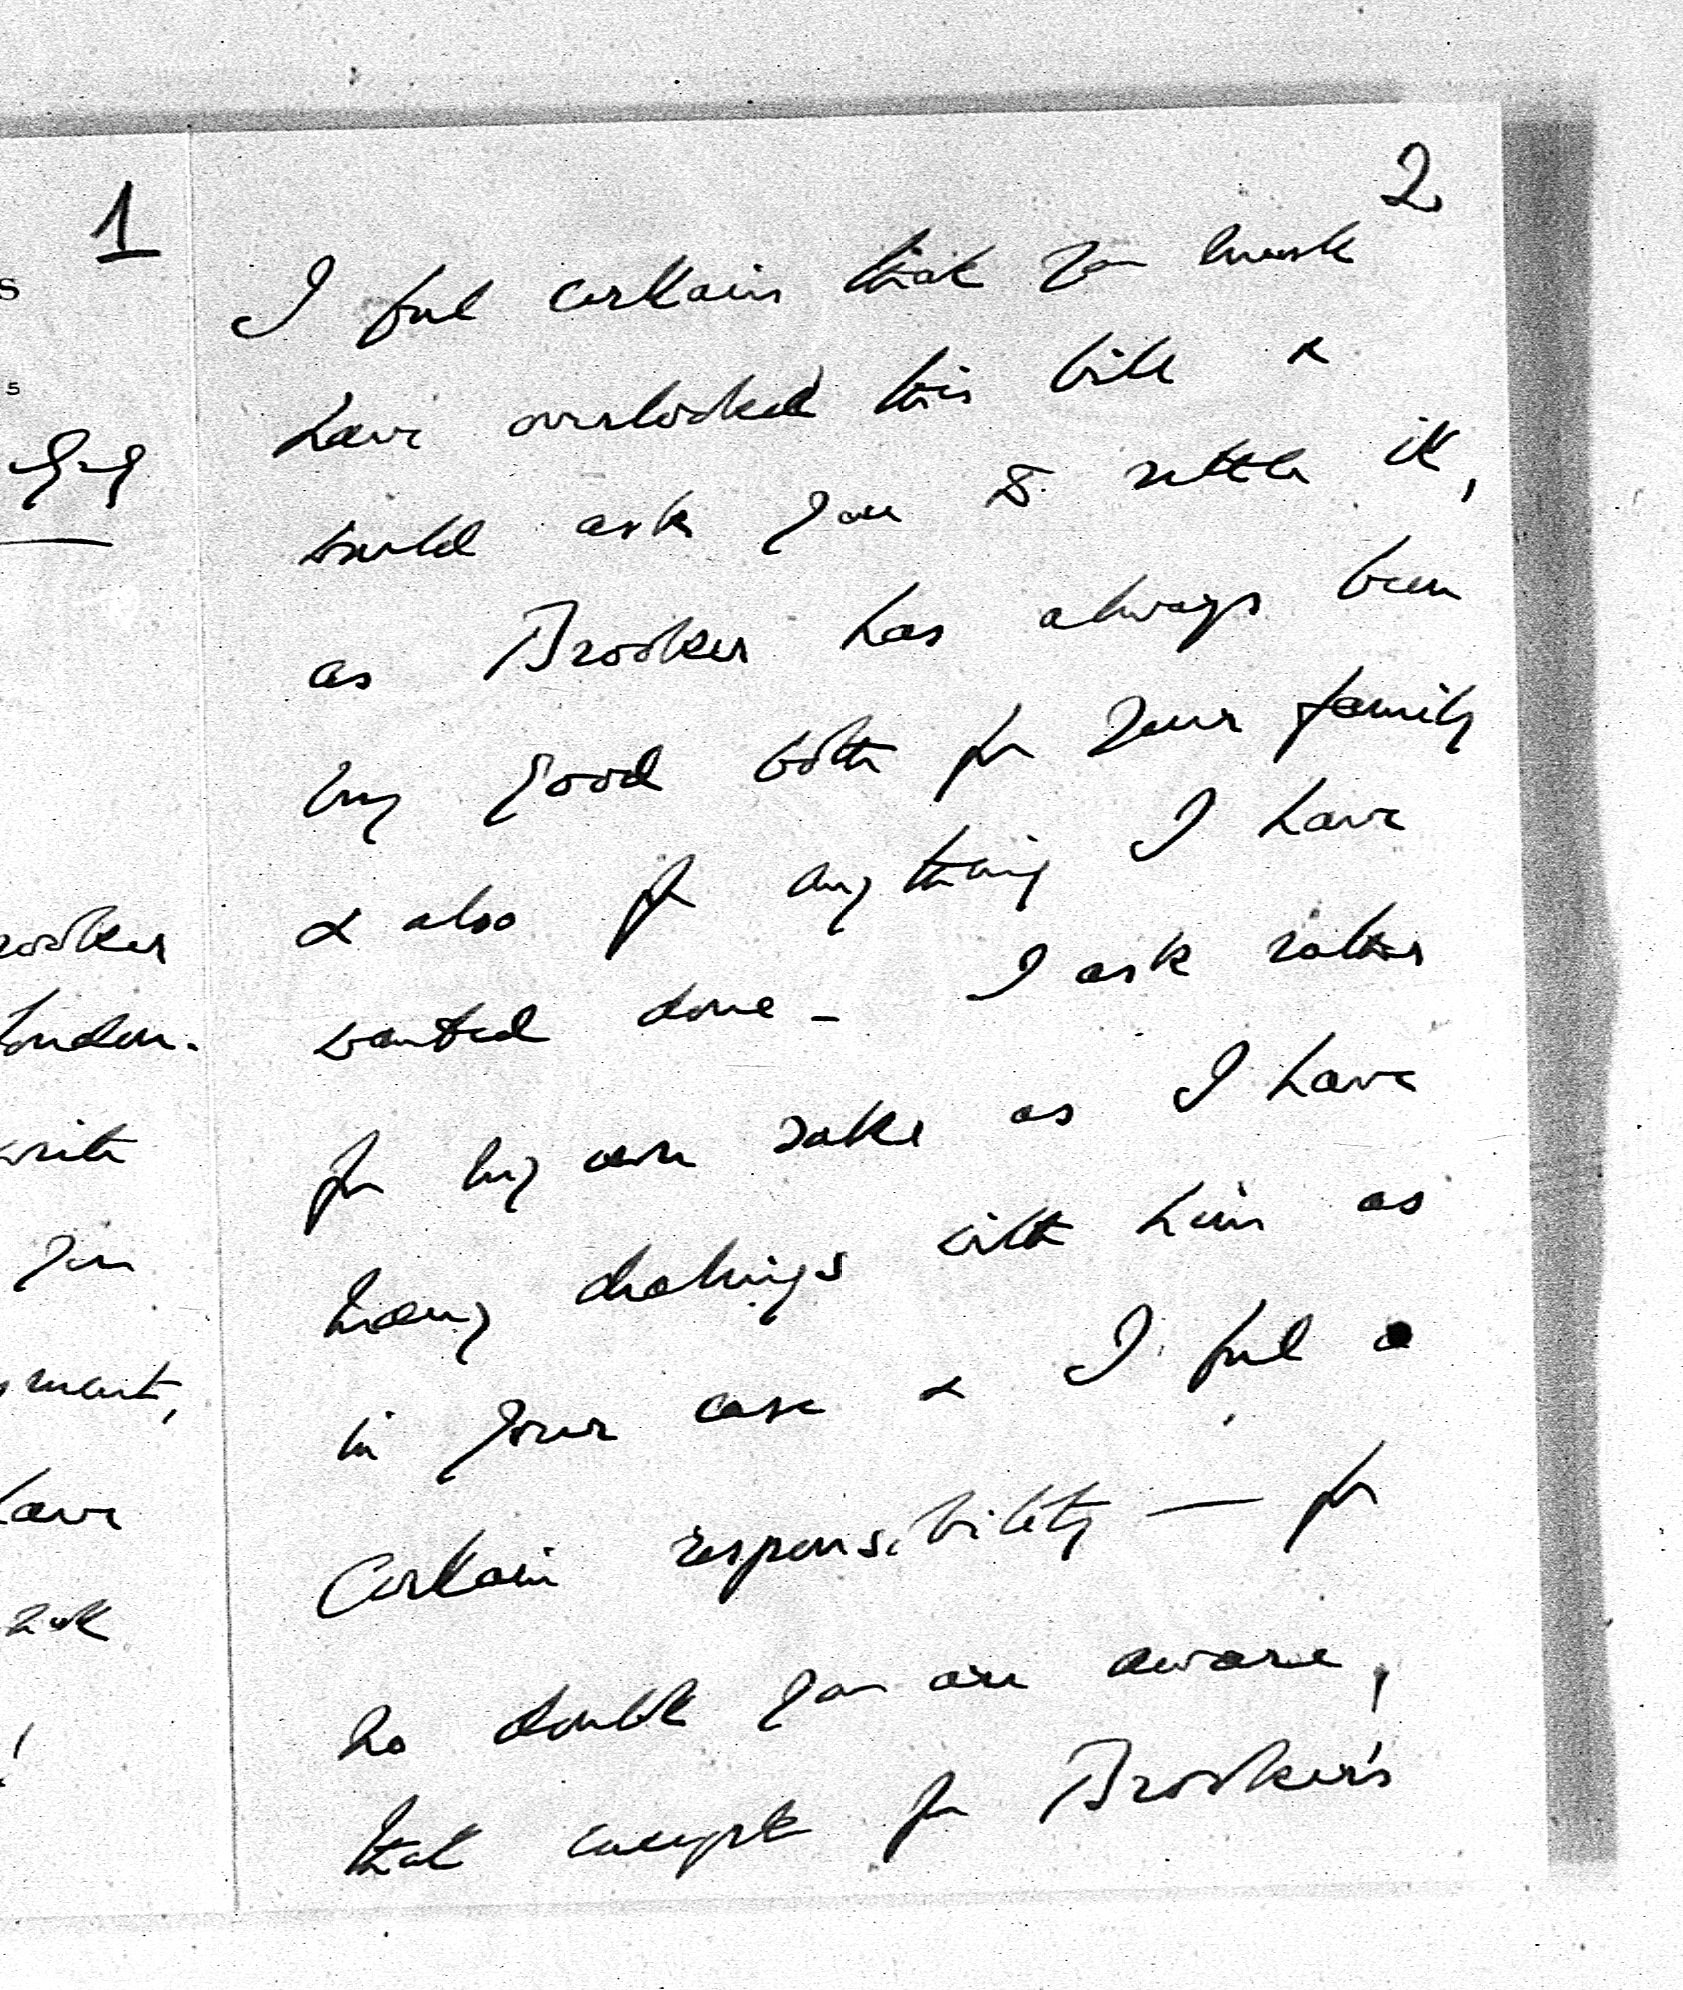 1
s
s
rooker
London.
write
you
ment,
have
ask
!
2
I feel certain that you must
have overlooked this bill &
would ask you to settle it,
as Brooker has always been
very good both for your family
& also for anything I have
wanted done - I ask rather
for my own sake as I have
many dealings with him as
in your case & I feel a
certain responsibility — for
no doubt you are aware,
that except for Brooker's